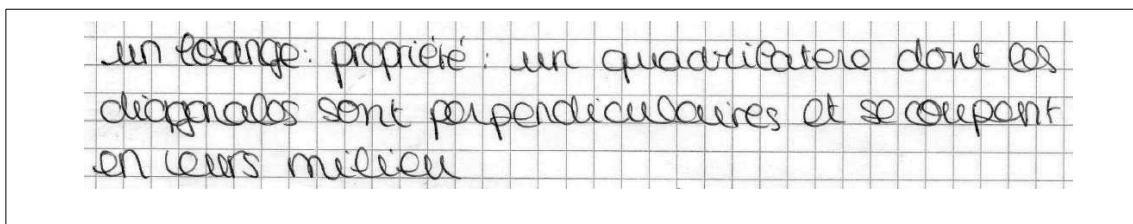 un losange : propriété : un quadrilatere dont les
diagonales sont perpendiculaires et se coupent
en leurs milieu